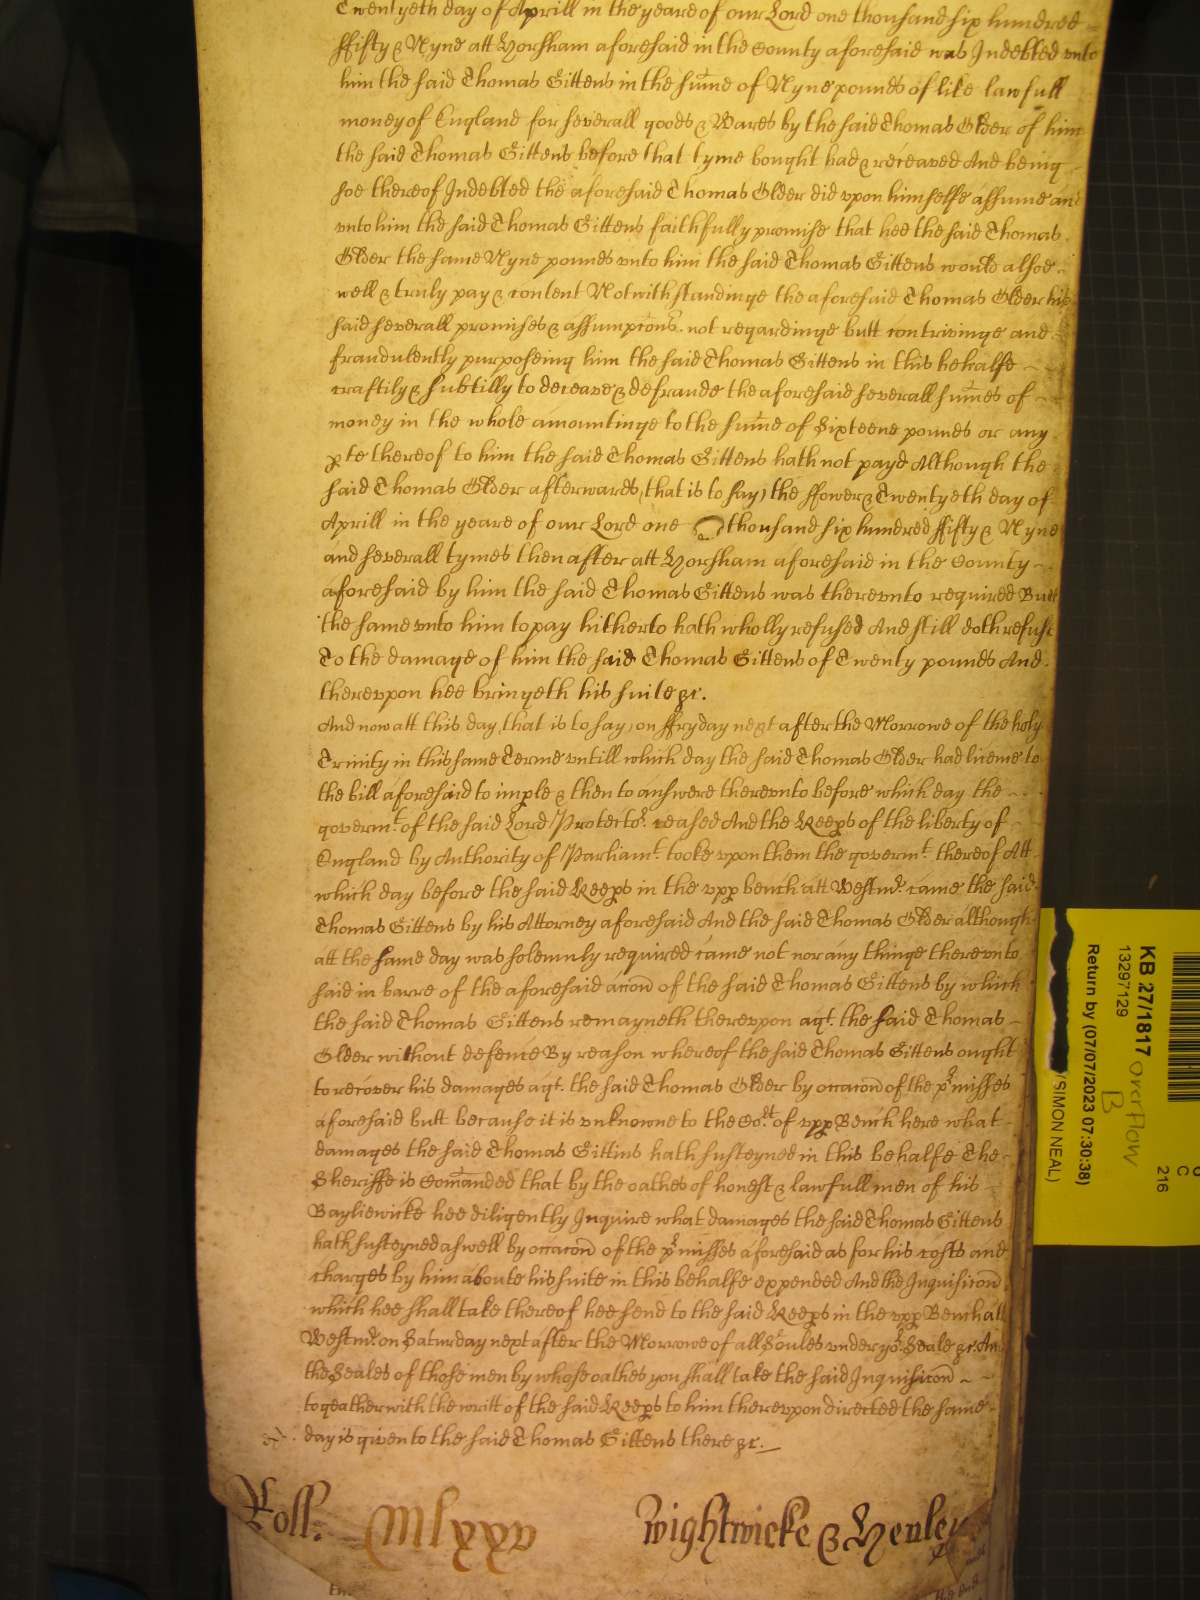 Twentyeth day of Aprill in the yeare of our Lord one thousand six hundred
ffifty & Nyne att Horsham aforesaid in the County aforesaid was Indebted vnto
him the said Thomas Gittens in the sume of Nyne pounds of like lawfull
money of England for severall goods & Wares by the said Thomas Older of him
the said Thomas Gittens before that tyme bought had & receaved And being
soe thereof Indebted the aforesaid Thomas Older did vpon himselfe assume and
vnto him the said Thomas Gittens faithfully promise that hee the said Thomas
Older the same Nyne pounds vnto him the said Thomas Gittens would alsoe
well & truly pay & content Notwithstandinge the aforesaid Thomas Older his
said severall promises & assumpcons not regardinge butt contrivinge and
fraudulently purposeing him the said Thomas Gittens in this behalfe
craftily & subtilly to deceave & defraude the aforesaid severall sumes of
money in the whole amountinge to the sume of Sixteene pounds or any
pte thereof to him the said Thomas Gittens hath not payd Although the
said Thomas Older afterwards, that is to say, the ffower & Twentyeth day of
Aprill in the yeare of our Lord one thousand six hundred ffifty & Nyne
and severall tymes then after att Horsham aforesaid in the County
aforesaid by him the said Thomas Gittens was therevnto required Butt
the same vnto him to pay hitherto hath wholly refused And still doth refuse
To the damage of him the said Thomas Gittens of Twenty pounds And
therevpon hee bringeth his suite &c.
And now att this day, that is to say, on ffryday next after the Morrowe of the holy
Trinity in this same Terme vntill which day the said Thomas Older had licence to
the bill aforesaid to imple & then to answere therevnto before which day the
governt. of the said Lord Protector. ceased And the Keeps of the liberty of
England by Authority of Parliamt. tooke vpon them the governt. thereof Att
which day before the said Keeps in the vpp bench att Westmr. came the said
Thomas Gittens by his Attorney aforesaid And the said Thomas Older although
att the same day was solemnly required came not nor any thinge therevnto
said in barre of the aforesaid accon of the said Thomas Gittens by which
the said Thomas Gittens remayneth therevpon agt. the said Thomas
Older without defence By reason whereof the said Thomas Gittens ought
to recover his damages agt. the said Thomas Older by occacon of the pmisses
aforesaid butt because it is vnknowne to the Cort. of vpp Bench here what
damages the said Thomas Gittins hath susteyned in this behalfe The
Sheriffe is Comanded that by the oathes of honest & lawfull men of his
Bayliewicke hee diligently Inquire what damages the said Thomas Gittens
hath susteyned aswell by occacon of the pmisses aforesaid as for his costs and
charges by him aboute his suite in this behalfe expended And the Inquisicon
which hee shall take thereof hee send to the said Keeps in the vpp Bench att
Westmr. on Saturday next after the Morrowe of all Soules vnder yor. Seale &c. And
the Seales of those men by whose oathes you shall take the said Inquisicon
togeather with the writt of the said Keeps to him therevpon directed the same
day is given to the said Thomas Gittens there &c.
Roll. Mlxxv Wightwicke & Henley
KB 27/1817 overflow
B
13297129
Return by (07/07/2023 07:30:38)
(SIMON NEAL)
C
216